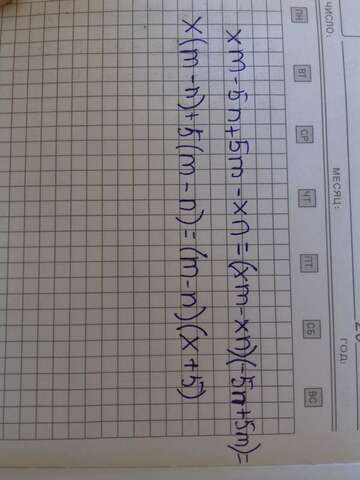 ЧИСЛО:
МЕСЯЦ:
20 ГОД:
ПН ВТ СР ЧТ ПТ СБ ВС
xm-5n+5m-xn=(xm-xn)(-5n+5m)=
x(m-n)+5(m-n)=(m-n)(x+5)